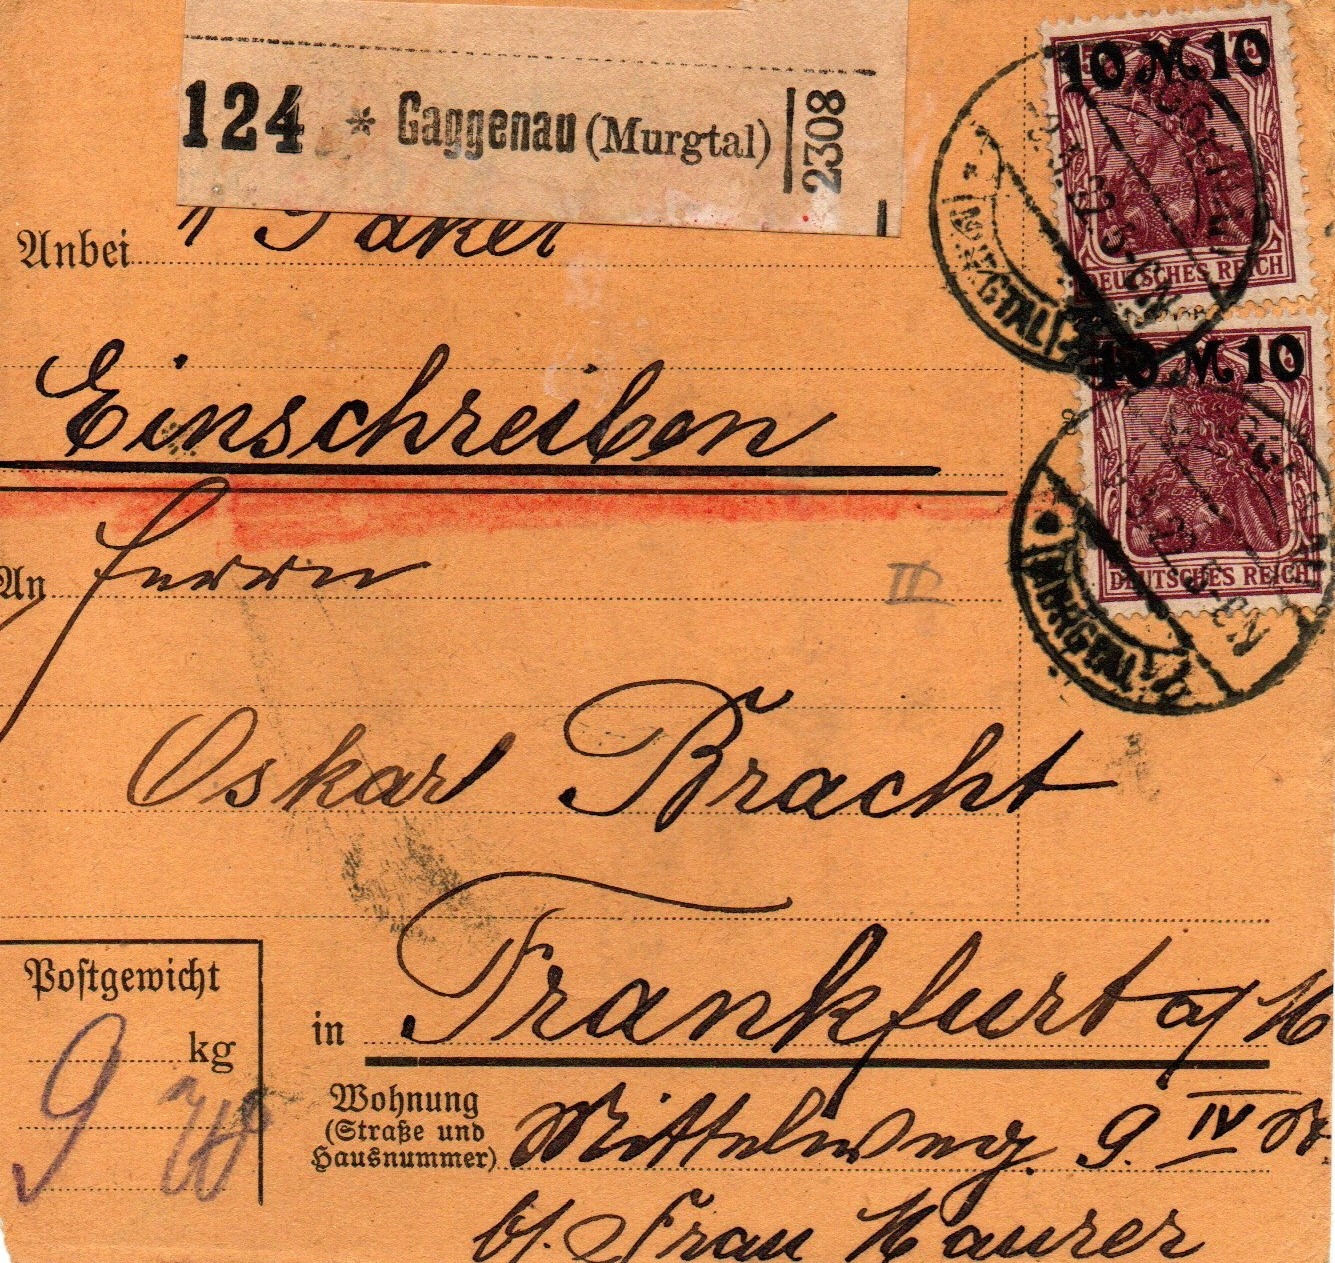 124 * Gaggenau (Murgtal) 2308
10 M 10
DEUTSCHES REICH
Anbei 1 Paket
10 M 10
DEUTSCHES REICH
(MURGTAL)
Einschreiben
An Herrn
(MURGTAL)
Oskar Bracht
Postgewicht
in Frankfurt a/M
kg
9
Wohnung
(Straße und
Hausnummer)
Mittelweg 9. IV
b/. Frau Maurer